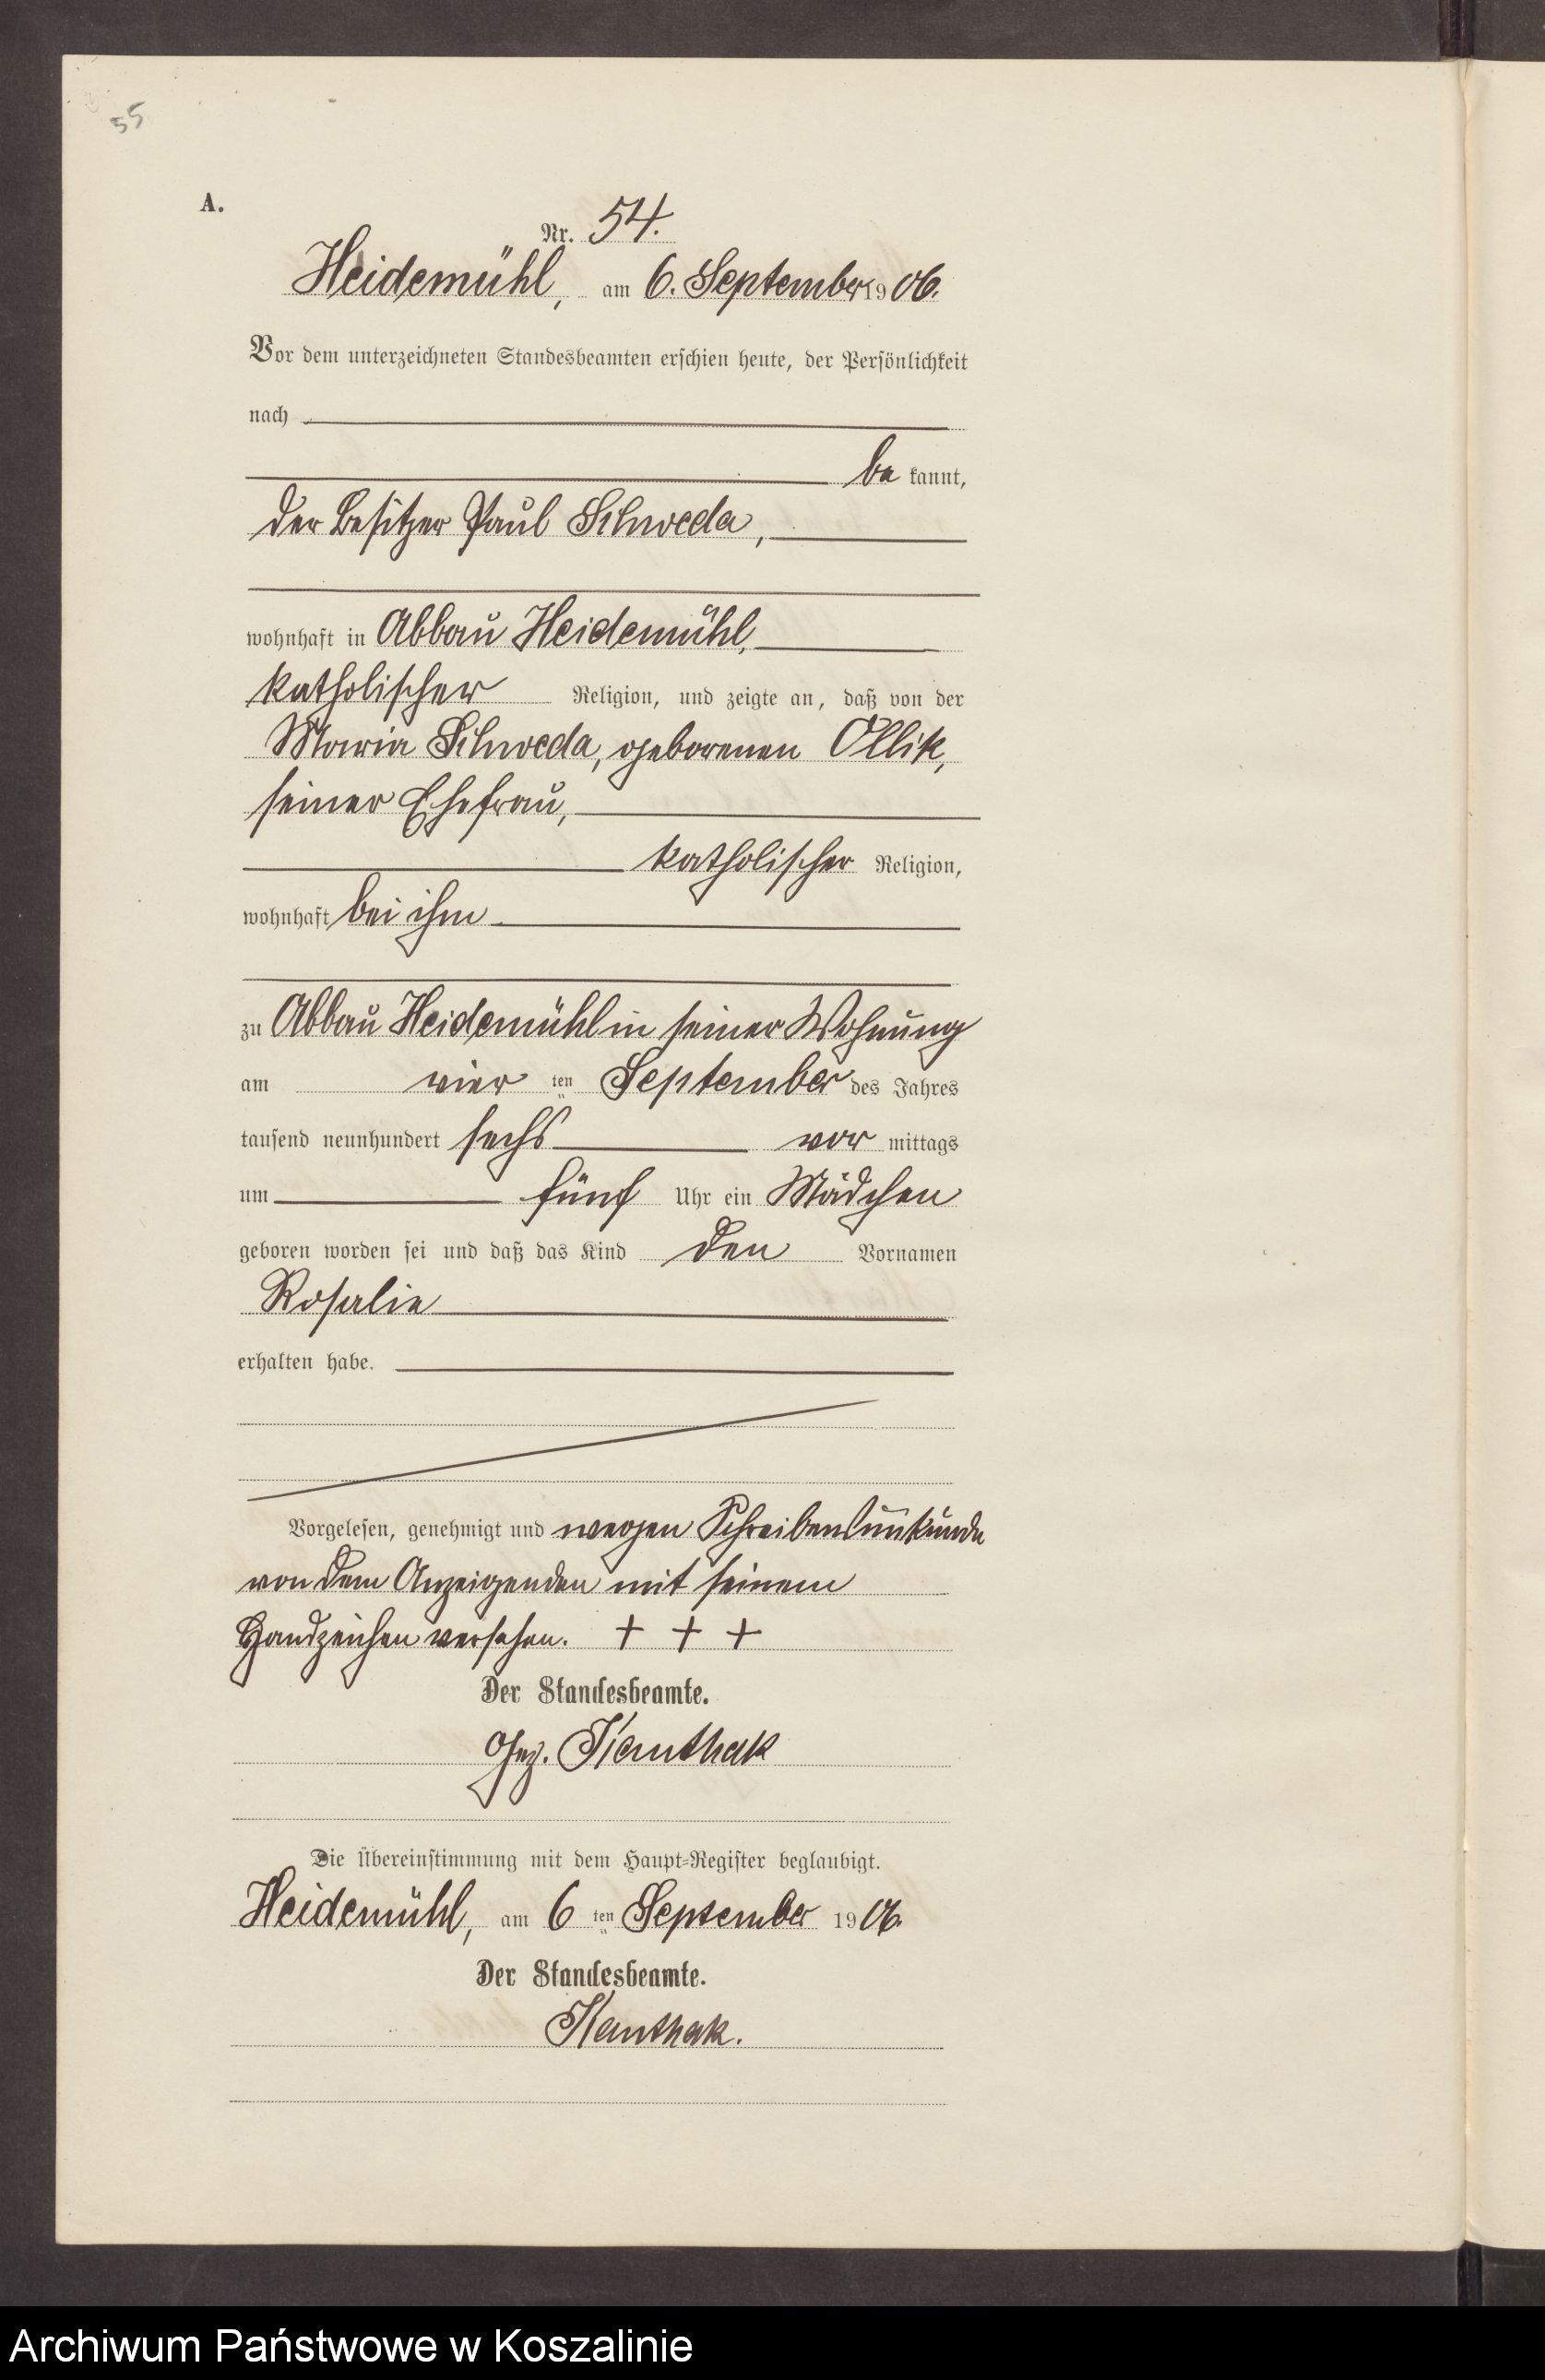 55
A.
Nr. 54.
Heidemühl, am 6. September 1906.
Vor dem unterzeichneten Standesbeamten erschien heute, der Persönlichkeit
nach
be kannt,
der Besitzer Paul Schweda,
wohnhaft in Abbau Heidemühl,
katholischer Religion, und zeigte an, daß von der
Maria Schweda, geborenen Ollik,
seiner Ehefrau,
katholischer Religion,
wohnhaft bei ihm
zu Abbau Heidemühl in seiner Wohnung
am vier ten September des Jahres
tausend neunhundert sechs vor mittags
um fünf Uhr ein Mädchen
geboren worden sei und daß das Kind den Vornamen
Rosalie
erhalten habe.
Vorgelesen, genehmigt und wegen Schreibensunkunde
von dem Anzeigenden mit seinem
Handzeichen versehen. + + +
Der Standesbeamte.
Gez. Kanthak
Die Übereinstimmung mit dem Haupt-Register beglaubigt.
Heidemühl, am 6 ten September 1906.
Der Standesbeamte.
Kanthak.
Archiwum Państwowe w Koszalinie